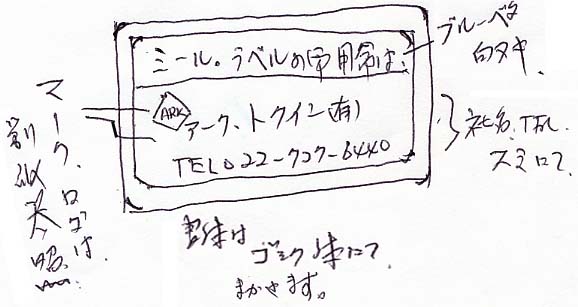 シール。ラベルの御用命は、
ブルーベタ
白ヌキ、
ARK
アーク、トクイン(有)
TEL022-727-6440
社名、TEL、
スミにて、
マーク、ロゴは、
別紙参照
書体は
ゴシック体にて
まかせます。